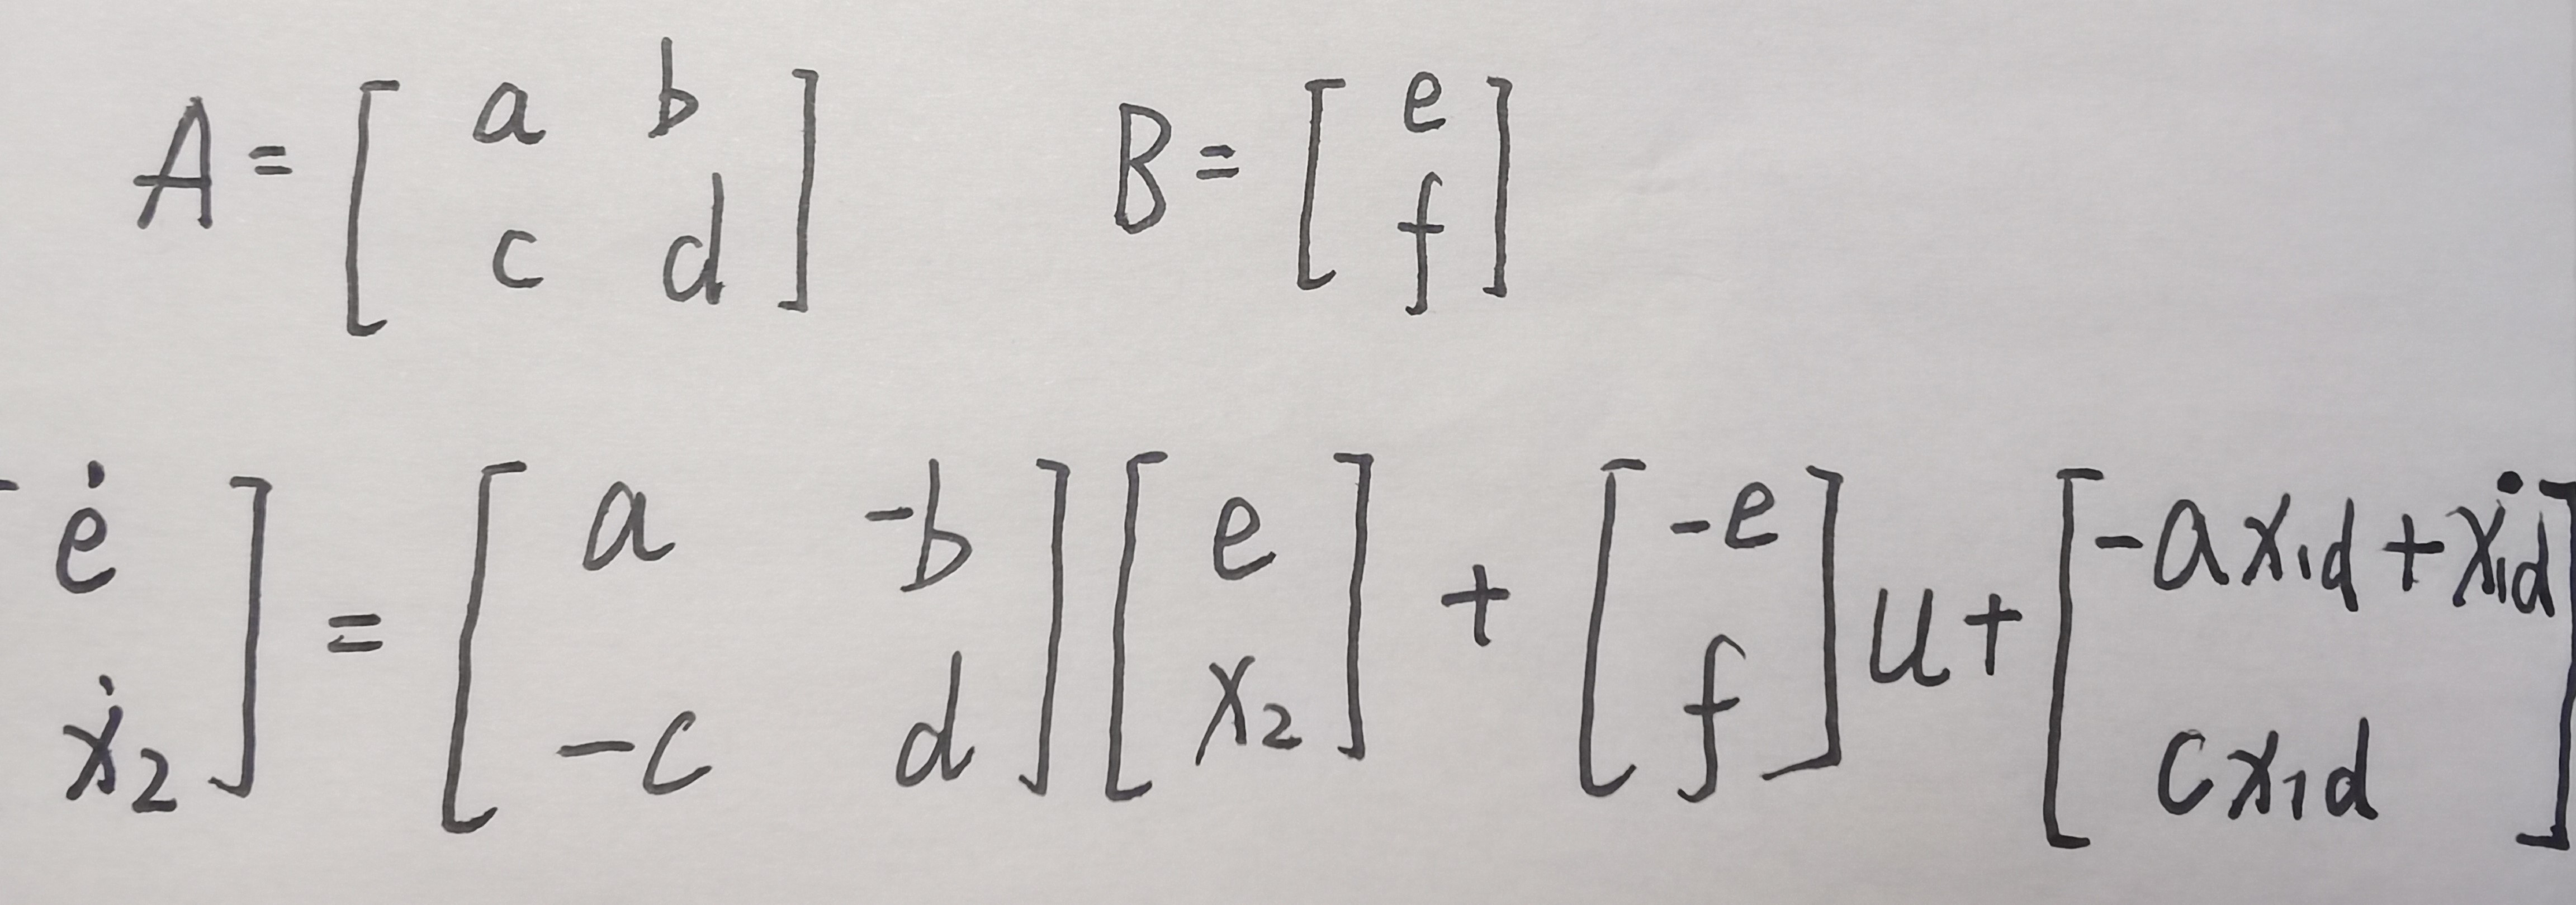 A = [ a b ; c d ]   B = [ e ; f ]
[ ė ; ẋ₂ ] = [ a -b ; -c d ] [ e ; x₂ ] + [ -e ; f ] u + [ -ax₁d + ẋ₁d ; cx₁d ]